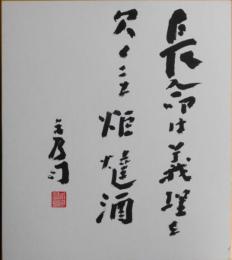 長命は義理を
欠くこと炬燵酒